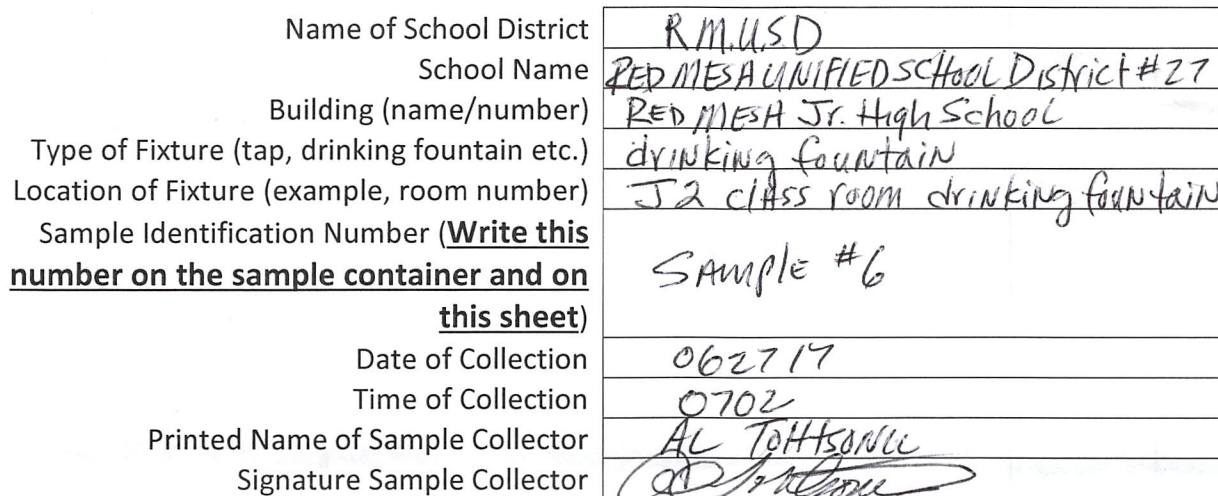 Name of School District R.M.U.S.D
School Name RED MESA UNIFIED SCHOOL District #27
Building (name/number) RED MESA Jr. High School
Type of Fixture (tap, drinking fountain etc.) drinking fountain
Location of Fixture (example, room number) J2 class room drinking fountain
Sample Identification Number (Write this
number on the sample container and on
this sheet) SAMPlE #6
Date of Collection 062717
Time of Collection 0702
Printed Name of Sample Collector AL
Signature Sample Collector